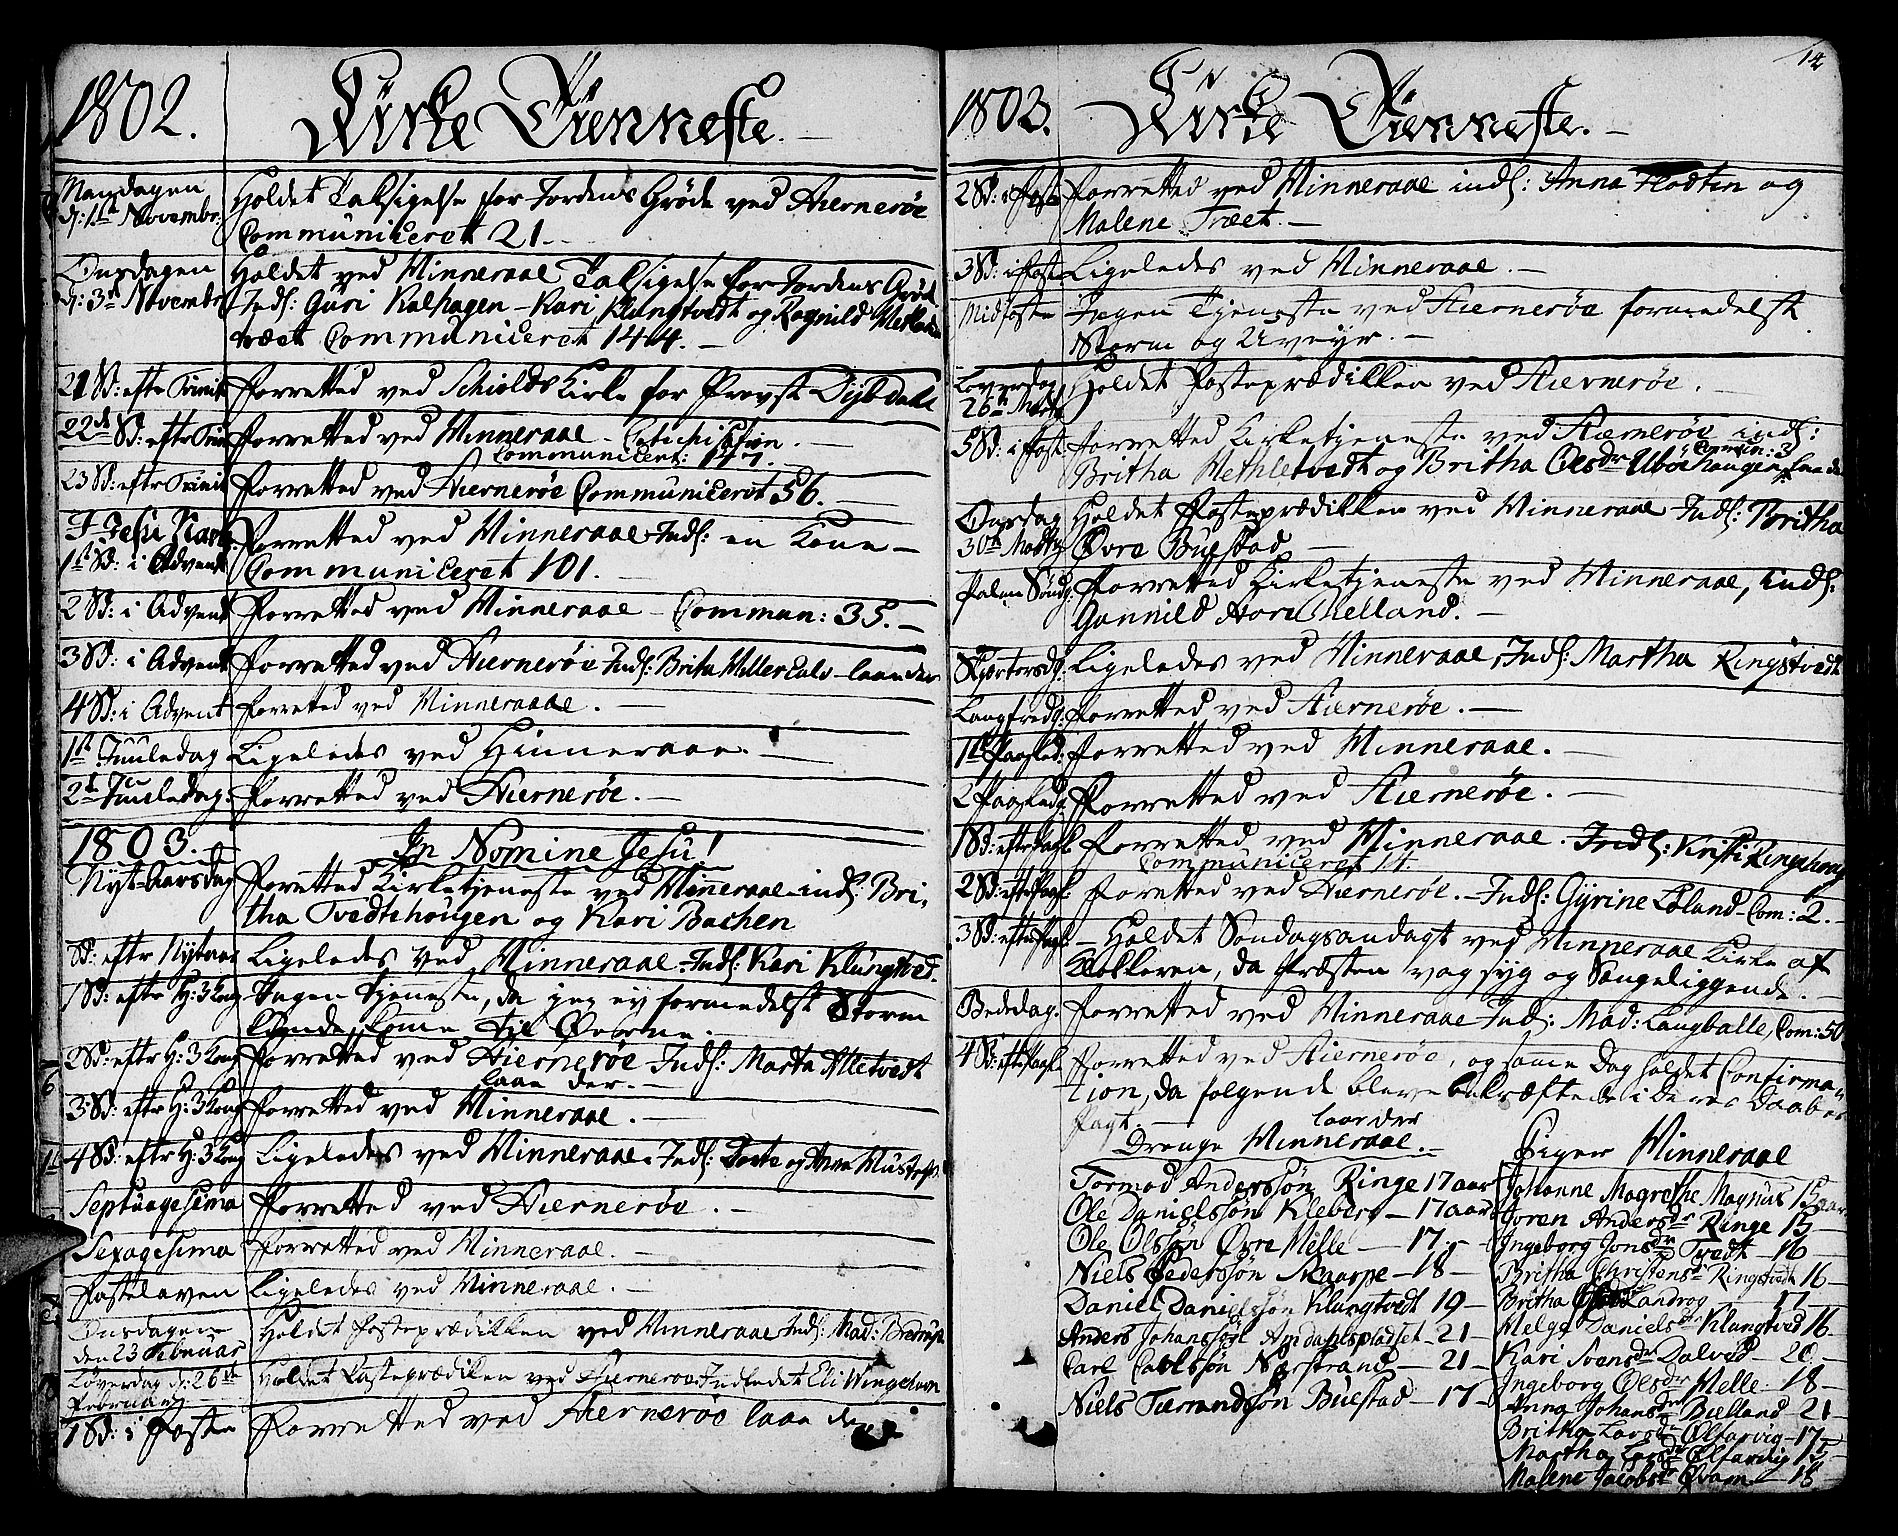 1802. Kirke Tienneste.
Mandagen Holdet Taksigelse for Jordens Grøde ved Hiernerøe
d: 1te Novembr. Communiceret 21.
Onsdagen Holdet ved Hinneraae Taksigelse for Jordens Grøde
d: 3de Novembr Indl: Guri Kalhagen - Kari Klungtvedt og Ragnild
træet Communiceret 144.
21 Sd: eftr Trinit Forretted ved Schiolds Kirke for Provst Dybdahl
22de Sd: eftr Trin Forretted ved Hinneraae - Catichisation.
Communicert:
23 Sd: eftr Trinit Forretted ved Hiernerøe Communiceret 56.
F Jesu Navn Forretted ved Hinneraae Indl: en Kone -
1te Sd: i Advent Communiceret 101.
2 Sd: i Advent Forretted ved Hinneraae - Commun: 35.
3 Sd: i Advent Forretted ved Hiernerøe Indl: Brita - laae der
4 Sd: i Advent Forretted ved Hinneraae.
1te Juuledag Ligeledes ved Hinneraae.
2de Juuledag. Forretted ved Hiernerøe.
1803. In Nomine Jesu!
Nyt-Aarsdag Forretted Kirketjeneste ved Hinneraae indl: Bri-
tha Tvedtehougen og Kari Bachen
Sd: eftr Nytaar Ligeledes ved Hinneraae - Indl: Kari Klungtved.
1 Sd: eftr H: 3 Kong Ingen Tjeneste, da jeg ey formedelst Storm
kunde komme til Øerne.
2 Sd: eftr H: 3 Kong Forretted ved Hiernerøe - Indl: Marta Alletvedt
laae der.
3 Sd: eftr H: 3 Kong Forretted ved Hinneraae.
4 Sd: eftr H: 3 Kong Ligeledes ved Hinneraae. Indl: og Anna
Septuagesima Forretted ved Hiernerøe.
Sexagesima Forretted ved Hinneraae.
Fastelaven Ligeledes ved Hinneraae.
Onsdagen Holdet Fasteprædikken ved Hinneraae Indl: Mad:
den 23 Februar
Løverdag d: 26de Holdet Fasteprædiken ved Hierneroe Indledet Eli
Februarij
1 Sd: i Faste Forretted ved Hiernerøe laae der
14
1803. Kirke Tienneste.
2 Sd: i Faste Forretted ved Hinneraae indl: Anna Flodten og
Malene Træet.
3 Sd: i Faste Ligeledes ved Hinneraae.
Midfaste Ingen Tjeneste ved Hiernerøe formedelst
Storm og Uveyr.
Løverdag Holdet Fasteprædikken ved Hiernerøe.
26de Marty
5 Sd: i Fast. Forretted Kirketjeneste ved Hiernerøe indl:
Comun: 3
Britha og Britha Olsdr laae der
Onsdag Holdet Fasteprædikken ved Hinneraae Indl: Britha
30te Marty Øvre Buestad
Palm Søndg. Forretted Kirketjeneste ved Hinneraae, indl:
Gunnild Hore
Skjertorsdg. Ligeledes ved Hinneraae, Indl: Martha Ringstvedt
Langfredg. Forretted ved Hiernerøe.
1te Paaskd: Forretted ved Hinneraae.
2 Paaskdg Forretted ved Hiernerøe.
1 Sd: eftr Paask. Forretted ved Hinneraae. Indl: Kristi Ringehoug
Communiceret 14.
2 Sd: eftr Paask. Forretted ved Hiernerøe. - Indl: Gyrine Løland - Com: 2.
3 Sd: eftr Paask. - Holdet Søndagsandagt ved Hinneraae Kirke af
Klokkeren, da Præsten var syg og Sængeliggende.
Bededag. Forretted ved Hinneraae Ind: Mad: Langballe, Com: 50
4 Sd: eftr Paask. Forretted ved Hiernerøe, og samme Dag holdet Confirma-
tion, da følgende bleve bekræftede i deres Daabes
Pagt. laae der
Drenge Hinneraae.
Tormod Anderssøn Ringe 17 aar
Ole Danielssøn Kleberg - 17 aar
Ole Olssøn Øvre Helle - 17 -
Niels Pederssøn Skarpe - 18 -
Daniel Danielssøn Klungtvedt 19 -
Anders Johanssøn Amdahlspladset - 21 -
Carl Carlssøn Nærstrand - 21 -
Niels Buestad - 17 -
Piger Hinneraae
Johanne Magrethe Magnus 15 aar
Joren Andersdr Ringe 15 -
Ingeborg Jonsdr Tvedt - 16
Britha Christensdr Ringstvedt 16 -
Britha Landrog 17 -
Helge Danielsdr Klungtved 16 -
Kari Svensdr Dalvid - 20 -
Ingeborg Olsdr Helle - 18 -
Anna Johansdr Bielland - 21 -
Britha Larsdr Ølfarvig - 17 -
Martha Larsdr Ølfarvig 15 -
Malene Jacobsdr Qvam - 18